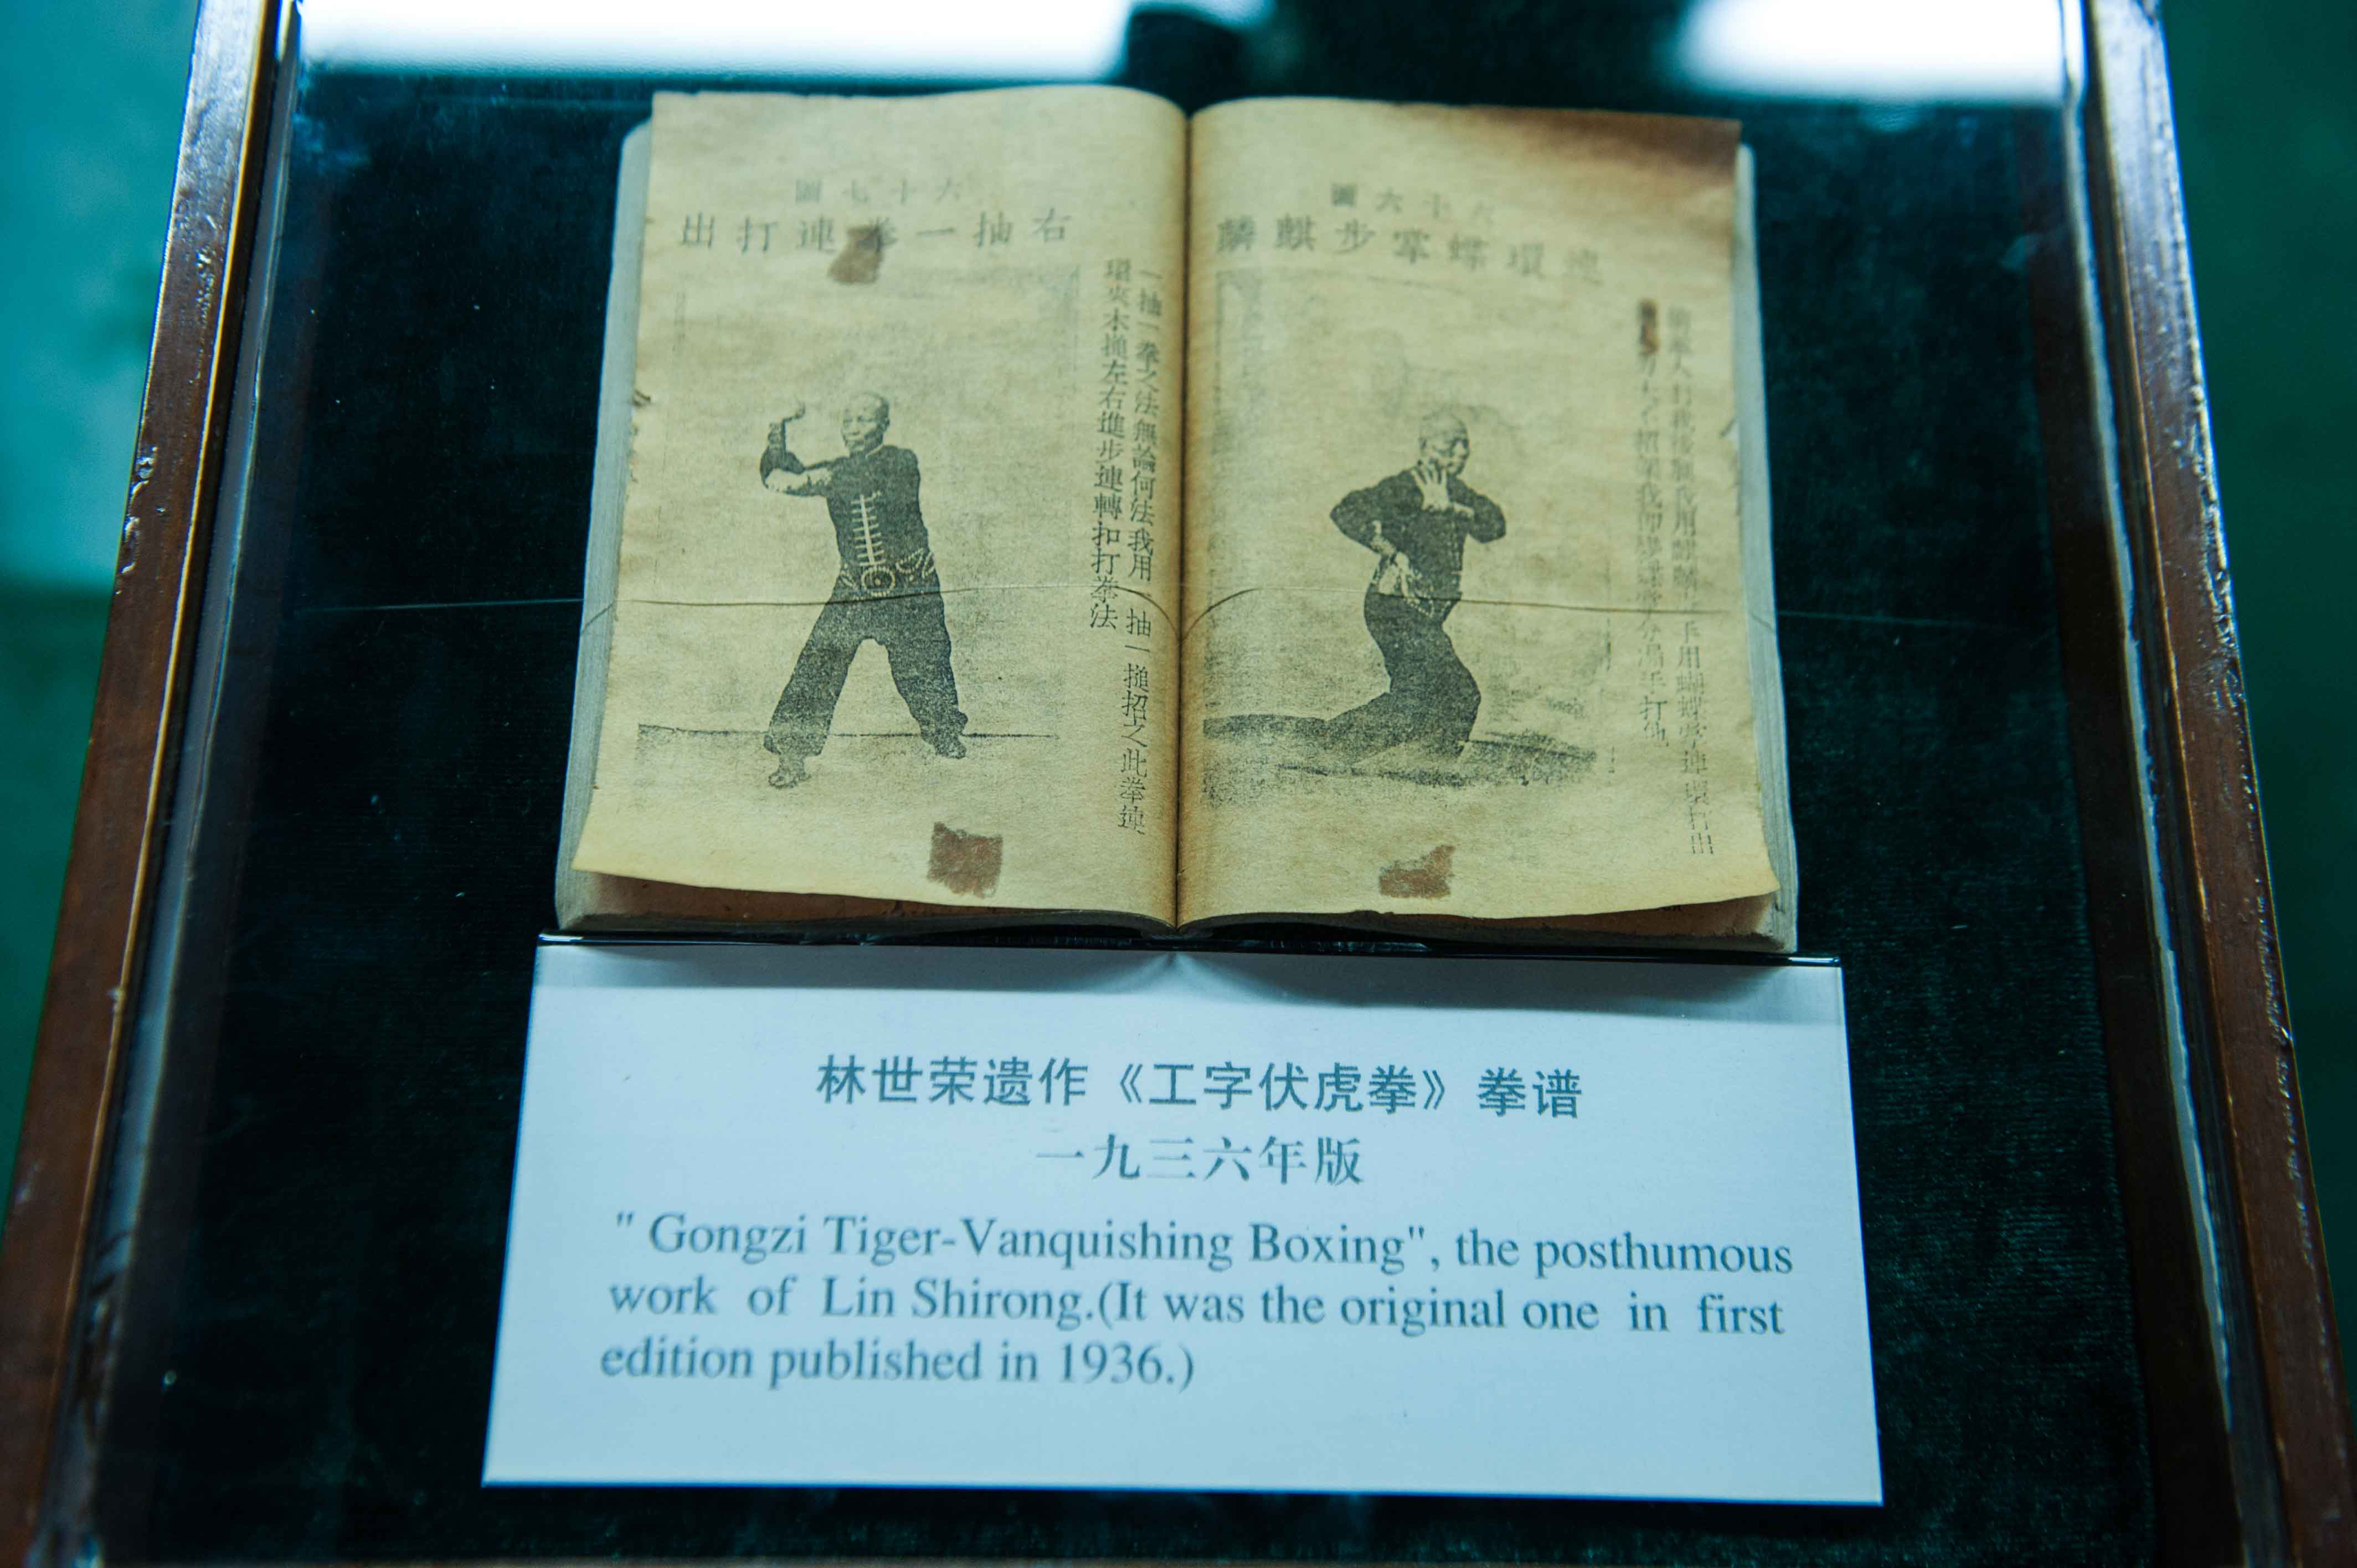 六十六圖
連環蝶掌步麒麟
人打我 我用麒麟 用蝴蝶掌連環打出
打他
六十七圖
右抽一拳連打出
一抽一拳之法無論何法我用一抽一搥招之此拳連
環夾木搥左右進步連轉扣打拳法
林世荣遗作《工字伏虎拳》拳谱
一九三六年版
" Gongzi Tiger-Vanquishing Boxing", the posthumous
work of Lin Shirong.(It was the original one in first
edition published in 1936.)